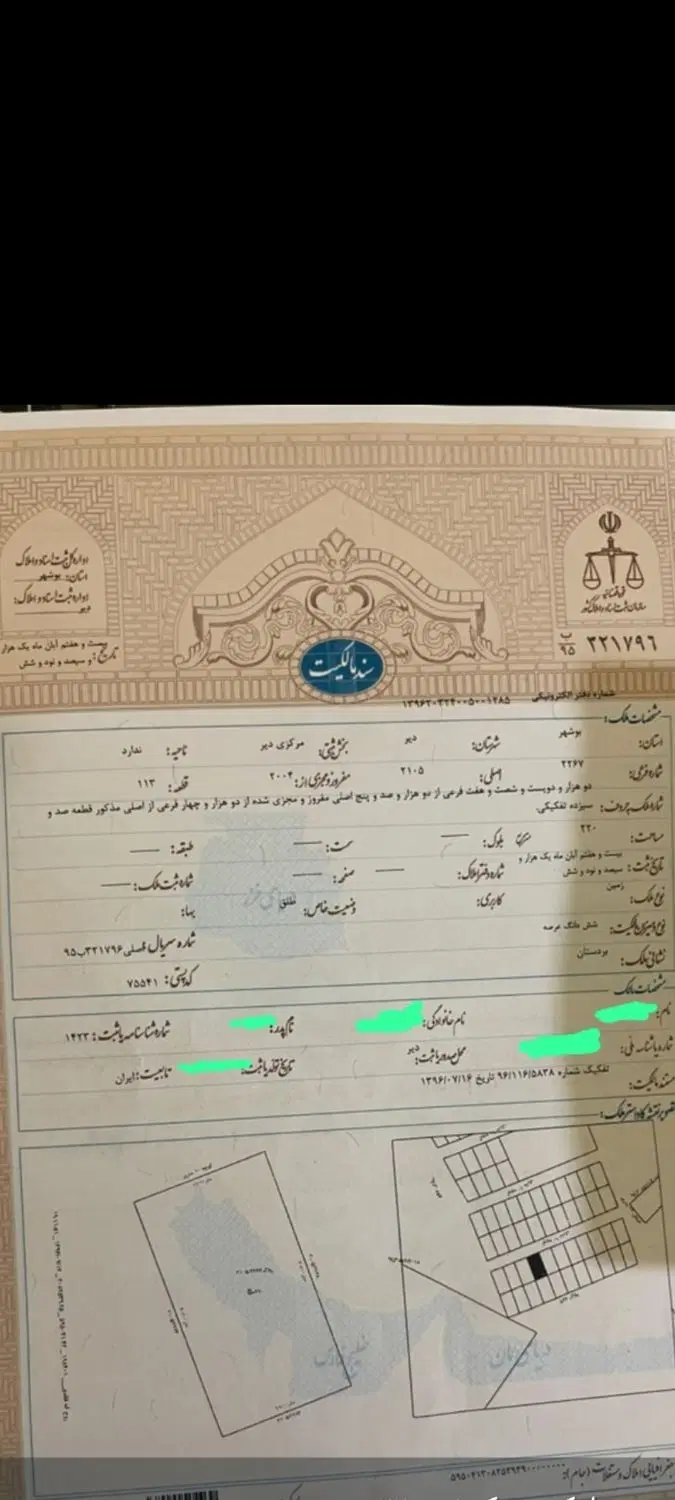 اداره کل ثبت اسناد و املاک
استان: بوشهر
اداره ثبت اسناد و املاک:
دیر
تاریخ: بیست و هفتم آبان ماه یک هزار و سیصد و نود و شش
قوه قضائیه
سازمان ثبت اسناد و املاک کشور
۳۲۱۷۹۶ ب ۹۵
سند مالکیت
شماره دفتر الکترونیکی ۱۳۹۶۲۰۳۲۴۰۰۵۰۰۱۲۸۵
مشخصات ملک:
استان: بوشهر شهرستان: دیر بخش ثبتی: مرکزی دیر ناحیه: ندارد
شماره فرعی: ۲۲۶۷ اصلی: ۲۱۰۵ مفروز و مجزی از: ۲۰۰۴ قطعه: ۱۱۳
شماره ملک به حروف: دو هزار و دویست و شصت و هفت فرعی از دو هزار و صد و پنج اصلی مفروز و مجزی شده از دو هزار و چهار فرعی از اصلی مذکور قطعه صد و
سیزده تفکیکی
مساحت: ۲۲۰ مترمربع بلوک: سمت: طبقه:
تاریخ ثبت: بیست و هفتم آبان ماه یک هزار و سیصد و نود و شش شماره دفتر املاک: صفحه: شماره ثبت ملک:
نوع ملک: زمین کاربری: وضعیت خاص: طلق بها:
نوع و میزان مالکیت: شش دانگ عرصه شماره سریال فصلی ۳۲۱۷۹۶ب۹۵
نشانی ملک: بردستان کدپستی: ۷۵۵۴۱
مشخصات مالک
نام: نام خانوادگی: نام پدر: شماره شناسنامه یا ثبت: ۱۴۲۳
شماره یا شناسه ملی: محل صدور یا ثبت: دیر تاریخ تولد یا ثبت: تابعیت: ایران
مستند مالکیت: تفکیک شماره ۹۶/۱۱۶/۵۸۳۸ تاریخ ۱۳۹۶/۰۷/۱۶
تصویر نقشه کاداستر ملک:
دریای خزر
خلیج فارس
دریای عمان